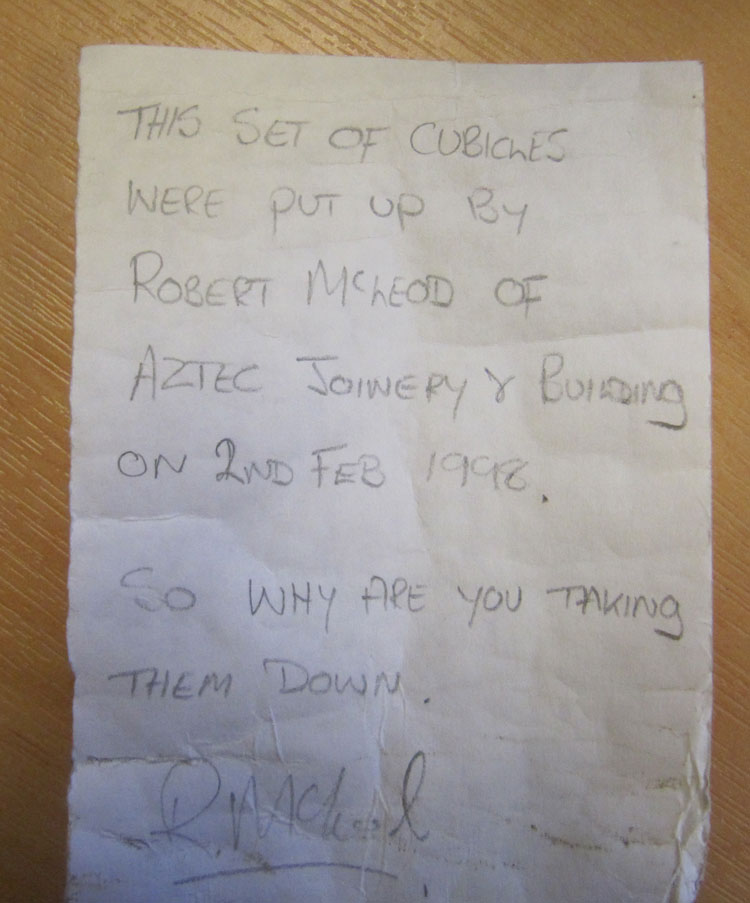 THIS SET OF CUBICLES
WERE PUT UP BY
ROBERT McLEOD OF
AZTEC JOINERY & BUILDING
ON 2ND FEB 1998.
SO WHY ARE YOU TAKING
THEM DOWN.
R. McLeod